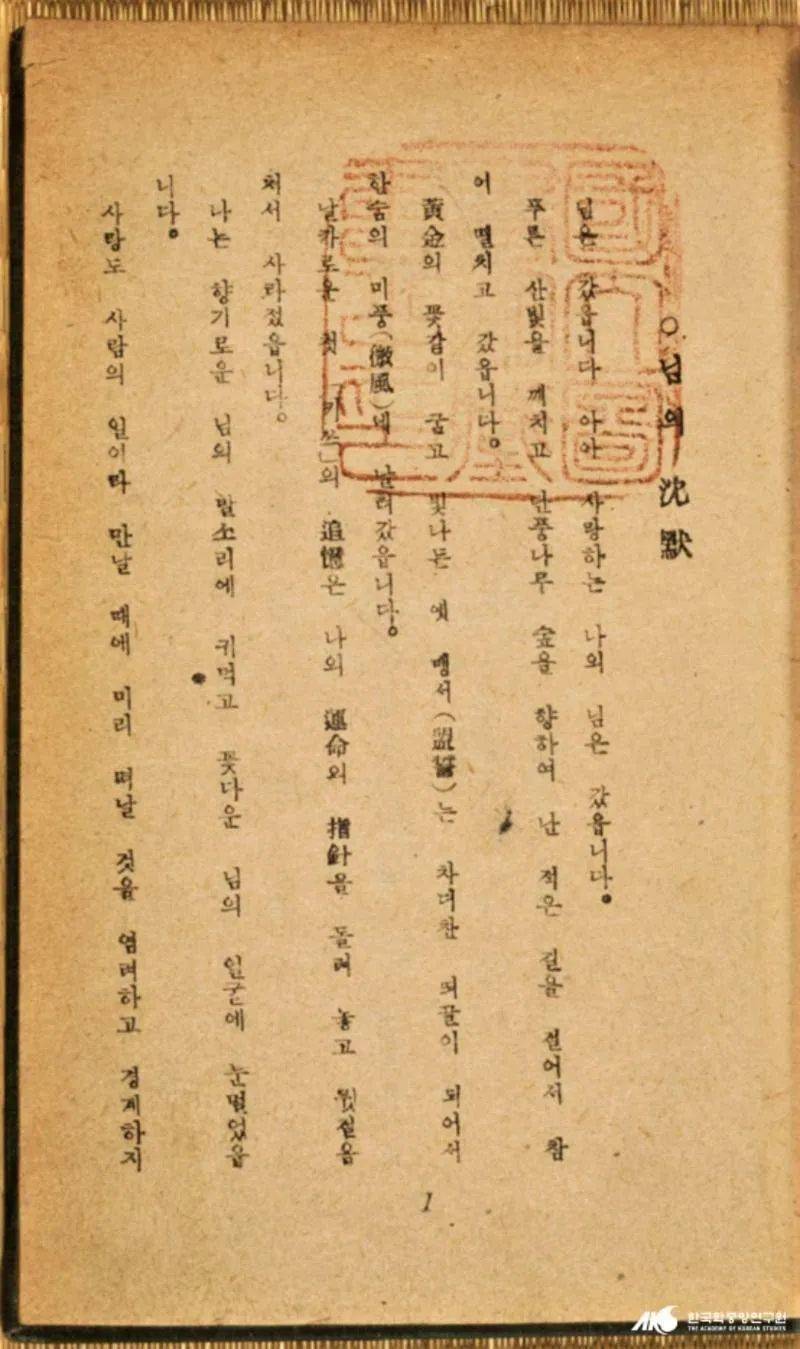 ○님의 沈默
님은 갔읍니다 아아 사랑하는 나의 님은 갔읍니다.
푸른 산빛을 깨치고 단풍나무 숲을 향하여 난 적은 길을 걸어서 참
어 떨치고 갔읍니다.
黃金의 꽃같이 굳고 빛나든 옛 맹서(盟誓)는 차디찬 띠끌이 되어서
한숨의 미풍(微風)에 날려갔읍니다.
날카로운 첫 「키쓰」의 追憶은 나의 運命의 指針을 돌려 놓고 뒷걸음
처서 사라졌읍니다.
나는 향기로운 님의 말소리에 귀먹고 꽃다운 님의 얼굴에 눈멀었읍
니다.
사랑도 사람의 일이라 만날 때에 미리 떠날 것을 염려하고 경계하지
1
AKS 한국학중앙연구원
THE ACADEMY OF KOREAN STUDIES